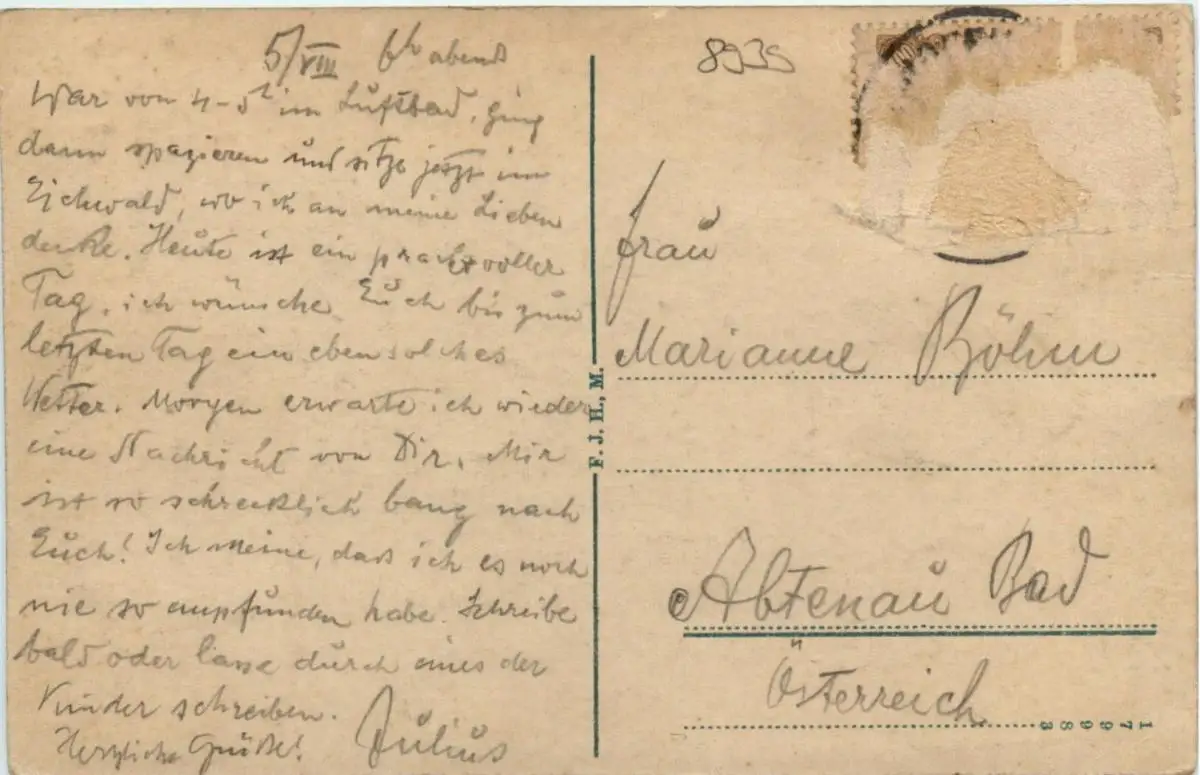 5/VIII 6h abend
War von 4-5h im Luftbad, ging
dann spazieren und sitze jetzt im
Eichwald, wo ich an meine Lieben
denke. Heute ist ein prachtvoller
Tag, ich wünsche Euch bis zum
letzten Tag ein ebensolches
Wetter. Morgen erwarte ich wieder
eine Nachricht von Dir. Mir
ist so schrecklich bang nach
Euch! Ich meine, dass ich es noch
nie so empfunden habe. Schreibe
bald oder lasse durch eines der
Kinder schreiben.
Herzliche Grüße! Julius
F. J. H., M.
8935
Frau
Marianne Böhm
Abtenau Bad
Österreich
179983